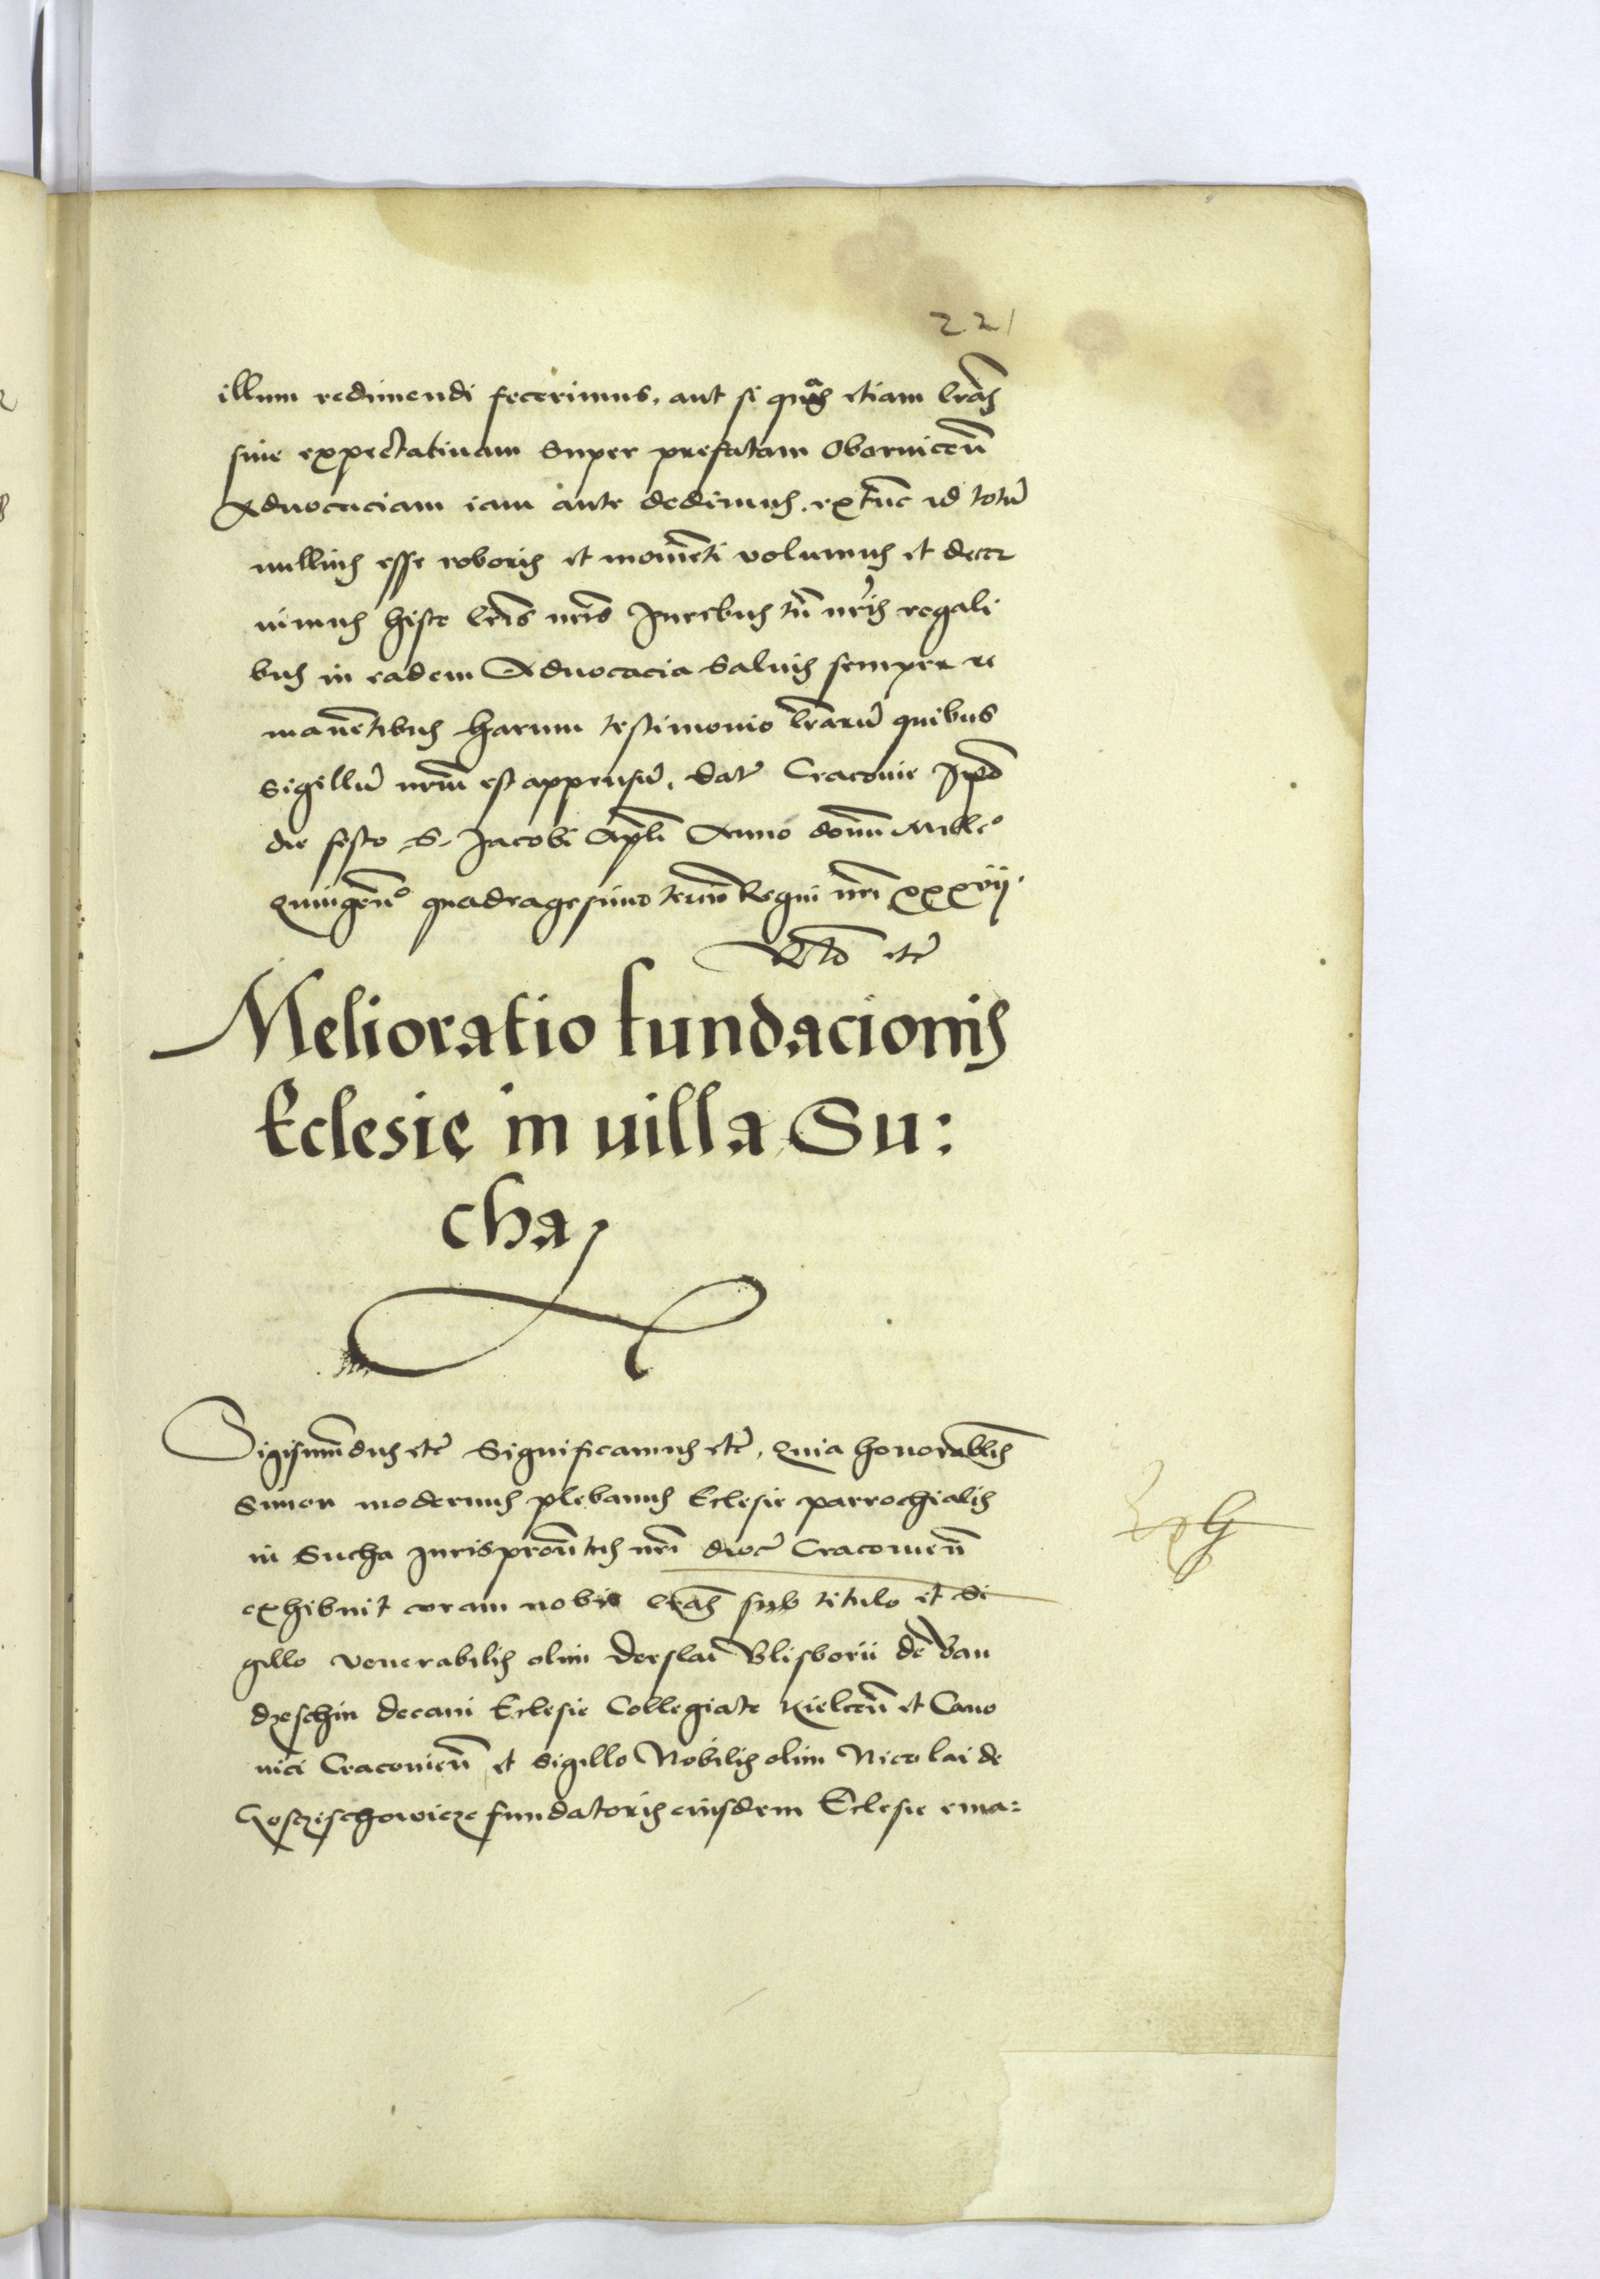 221
illum redimendi fecerimus, aut si quas etiam lrãs
siue expectatiuam super prefatam Obornicen̄
Aduocaciam iam ante dedimus, extūc id totū
nullius esse roboris et momēti volumus et decer
nimus hisce lris nris Juribus tn̄ nr̃is regali
bus in eadem Aduocacia saluis semper re
manētibus harum testimonio lrarū quibus
Sigillū nrm̄ est appensū. Dat̃ Cracouie Ip̄o
die festo S. Jacobi Apli Anno domi Mill̃o
Quingen̄o quadragesimo tercio Regni nri xxxvii.
Rtō etc̃
Melioratio fundacionis
Eclesię in uilla Su:
cha
Sigismūdus etc̃ Significamus etc̃, Quia honorablis
Simon modernus plebanus Eclesie parrochialis
in Sucha Jurispron̄tus nri dioc̃ Cracouien̄
exhibuit coram nobis lrãs sub titulo et Si
gillo venerabilis olim Derslai de Ban
dzeschin decani Eclesie Collegiate Kielcen̄ et Cano
nici Cracouien̄ et sigillo Nobilis olim Nicolai de
fundatoris eiusdem Eclesie ema: